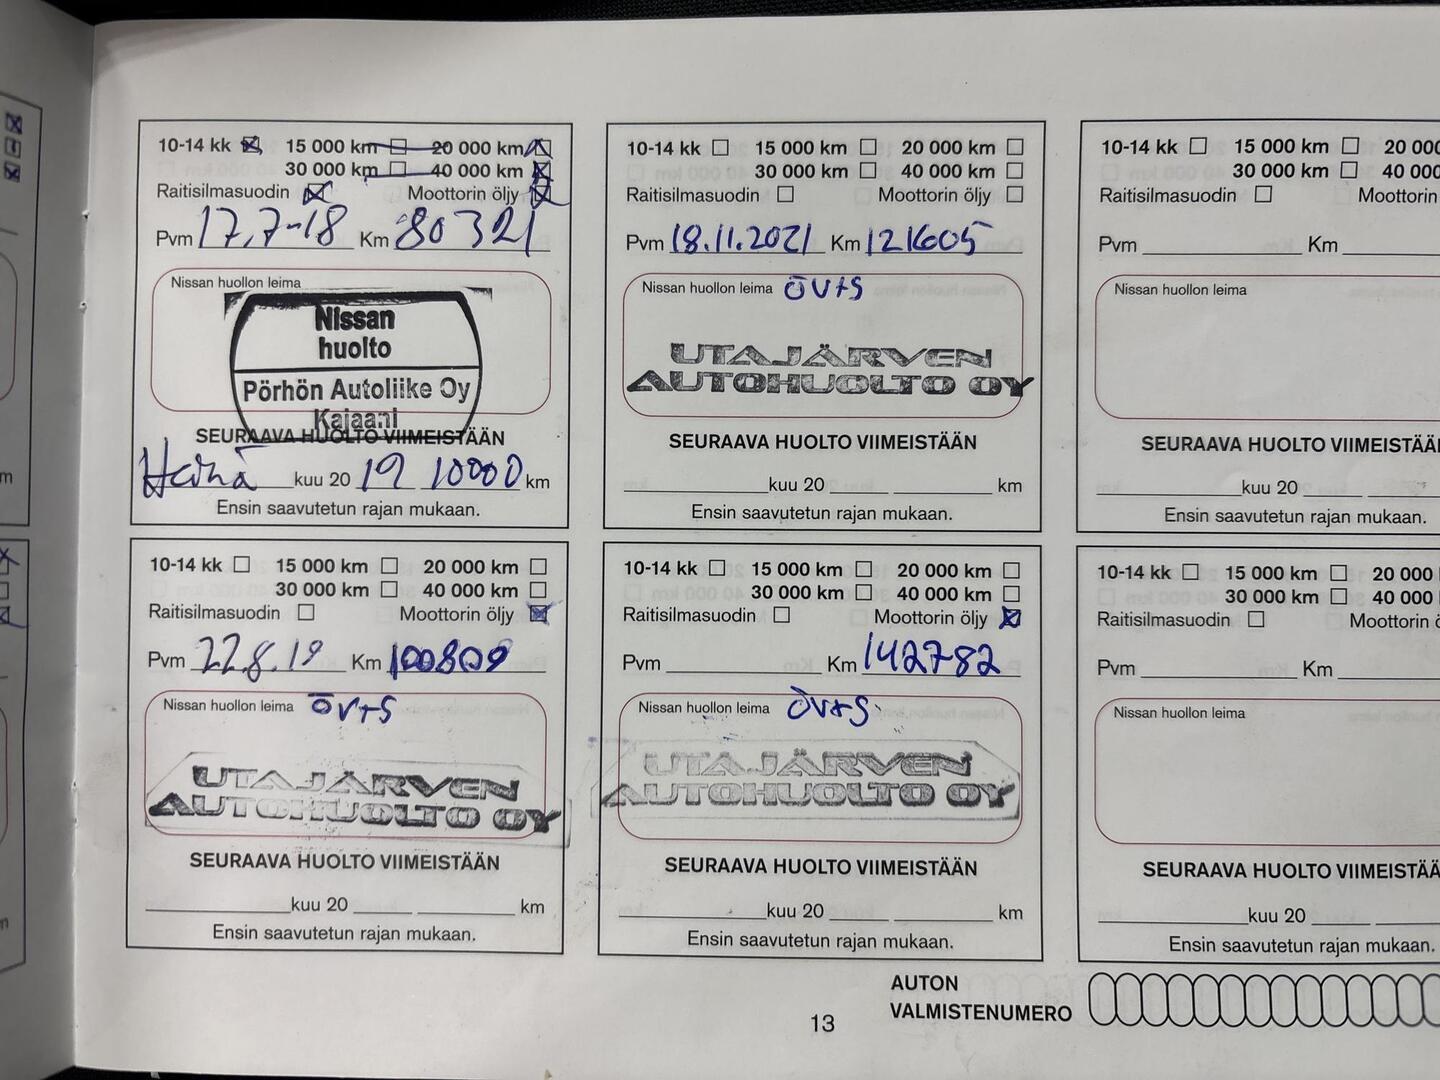 10-14 kk 15 000 km 20 000 km
30 000 km 40 000 km
Raitisilmasuodin Moottorin öljy
Pvm 17.7-18 Km 80321
Nissan huollon leima
Nissan
huolto
Pörhön Autoliike Oy
Kajaani
SEURAAVA HUOLTO VIIMEISTÄÄN
Heinä kuu 20 19 10000 km
Ensin saavutetun rajan mukaan.
10-14 kk 15 000 km 20 000 km
30 000 km 40 000 km
Raitisilmasuodin Moottorin öljy
Pvm 22.8.19 Km 100809
Nissan huollon leima öv+s
UTAJÄRVEN
AUTOHUOLTO OY
SEURAAVA HUOLTO VIIMEISTÄÄN
kuu 20 km
Ensin saavutetun rajan mukaan.
10-14 kk 15 000 km 20 000 km
30 000 km 40 000 km
Raitisilmasuodin Moottorin öljy
Pvm 18.11.2021 Km 121605
Nissan huollon leima öv+s
UTAJÄRVEN
AUTOHUOLTO OY
SEURAAVA HUOLTO VIIMEISTÄÄN
kuu 20 km
Ensin saavutetun rajan mukaan.
10-14 kk 15 000 km 20 000 km
30 000 km 40 000 km
Raitisilmasuodin Moottorin öljy
Pvm Km 142782
Nissan huollon leima öv+s
UTAJÄRVEN
AUTOHUOLTO OY
SEURAAVA HUOLTO VIIMEISTÄÄN
kuu 20 km
Ensin saavutetun rajan mukaan.
10-14 kk 15 000 km 20 000
30 000 km 40 000
Raitisilmasuodin Moottorin
Pvm Km
Nissan huollon leima
SEURAAVA HUOLTO VIIMEISTÄÄ
kuu 20
Ensin saavutetun rajan mukaan.
10-14 kk 15 000 km 20 000
30 000 km 40 000
Raitisilmasuodin Moottorin ö
Pvm Km
Nissan huollon leima
SEURAAVA HUOLTO VIIMEISTÄÄ
kuu 20
Ensin saavutetun rajan mukaan.
AUTON
VALMISTENUMERO
13